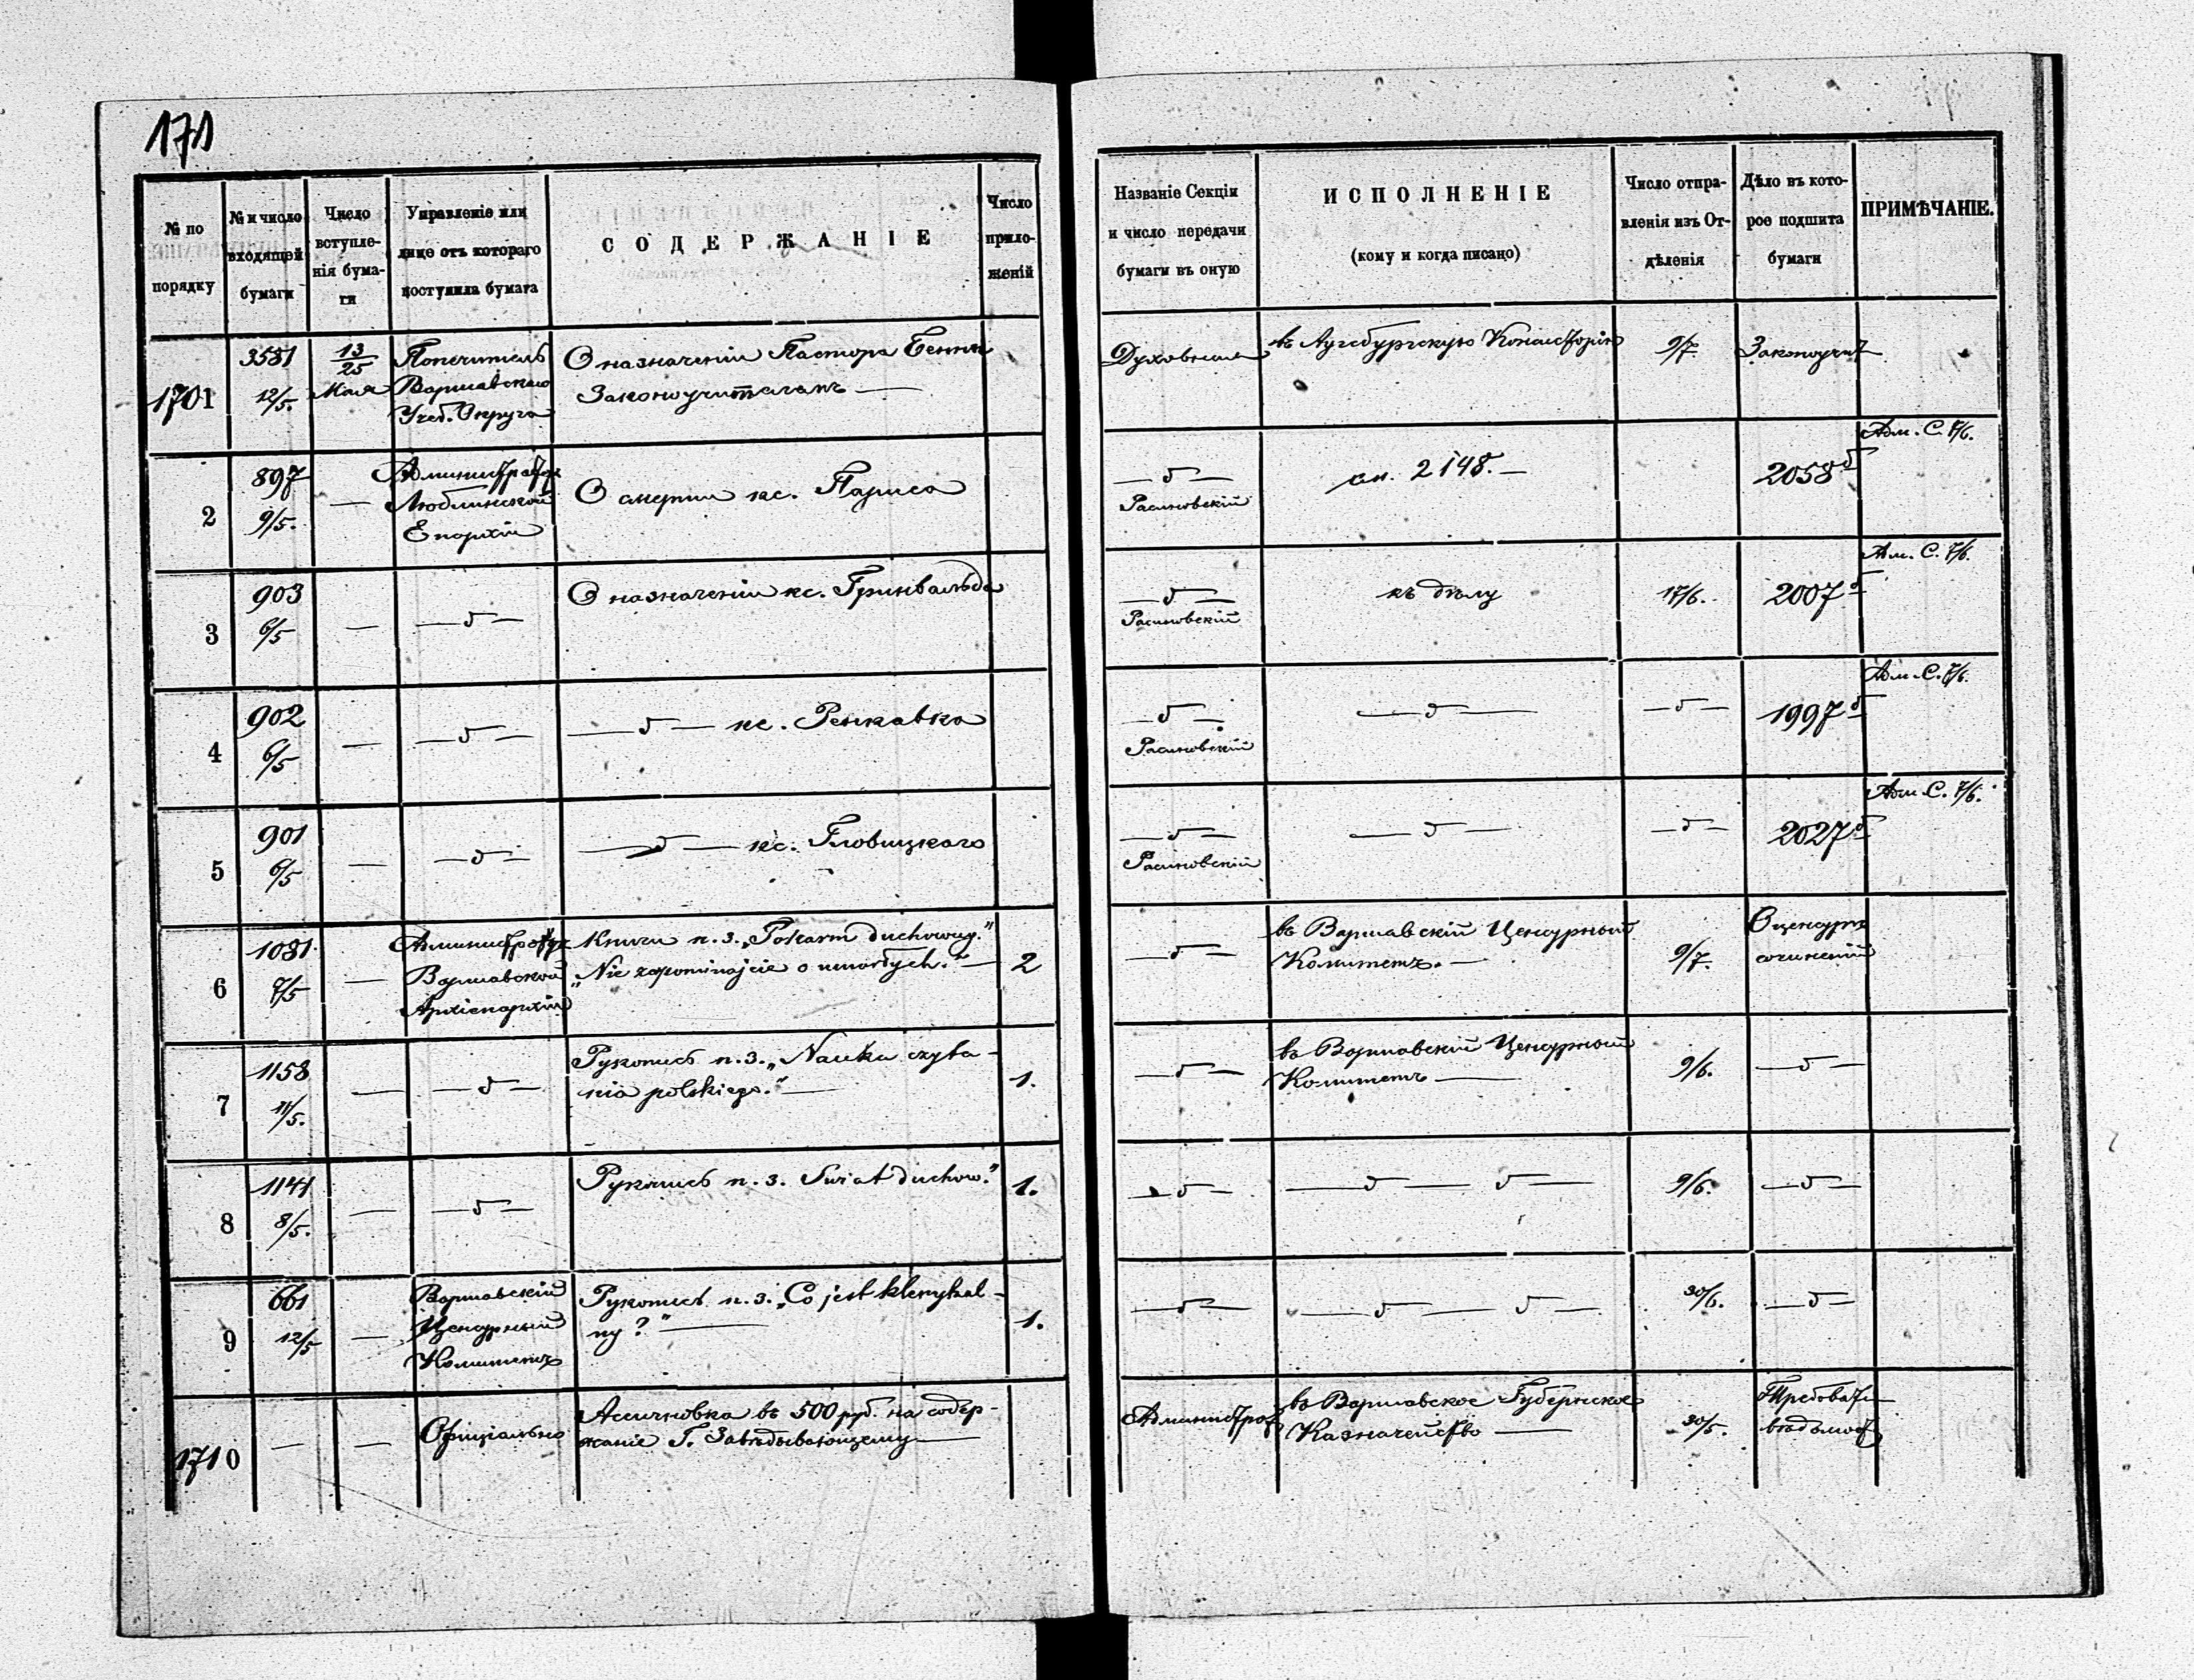 171
№ по порядку
№ и число входящей бумаги
Число вступленія бумаги
Управленіе или лице отъ котораго поступила бумага
СОДЕРЖАНІЕ
Число приложеній
Названіе Секціи и число передачи бумаги въ оную
ИСПОЛНЕНІЕ
(кому и когда писано)
Число отправленія изъ Отдѣленія
Дѣло въ которое подшита бумаги
ПРИМѢЧАНІЕ.
1701
3581
12/5.
13/25 Мая
Попечитель
Варшавскаго
Учеб. Округа
О назначеніи Пастора
Законоучителемъ —
въ Аугсбургскую Консисторію
9/7.
Законоучит
2
897
9/5.
—
Администраторъ
Люблинской
Епархіи
О смерти кс. Париса
— δ —
2148. —
2058 б
Адм. С. 7/6.
3
903
6/5
—
— δ —
О назначеніи кс. Гринвальда
— δ —
къ дѣлу
17/6.
2007 б
Адм. С. 7/6.
4
902
6/5
—
— δ —
— δ — кс. Ренкавка
— δ —
— δ —
— δ —
1997 б
Адм. С. 7/6.
5
901
6/5
—
— δ —
— δ — кс. Гловицкаго
— δ —
— δ —
— δ —
2027 б
Адм. С. 7/6.
6
1081
7/5
—
Администраторъ
Варшавской
Архіепархіи
Книги п. з. „Pokarm duchowny.”
„Nie zapominajcie o umarłych.” —
2
— δ —
въ Варшавскій Цензурный
Комитетъ. —
9/7.
О цензурѣ
сочиненій
7
1158
11/5.
—
— δ —
Рукопись п. з. „Nauka czyta-
nia polskiego.” —
1.
— δ —
въ Варшавскій Цензурный
Комитетъ —
9/6.
— δ —
8
1141
8/5.
—
— δ —
Рукопись п. з. Świat duchów.”
1.
— δ —
— δ — δ —
9/6.
— δ —
9
661
12/5
—
Варшавскій
Цензурный
Комитетъ
Рукопись п. з. „Co jest klerykal-
ny?” —
1.
— δ —
— δ — δ —
30/6.
— δ —
1710
—
—
Офиціально
Ассигновка въ 500 руб. на содер-
жаніе Г. Завѣдывающему —
Администрат
въ Варшавское Губернское
Казначейство —
30/5.
Требоват
вѣдомост